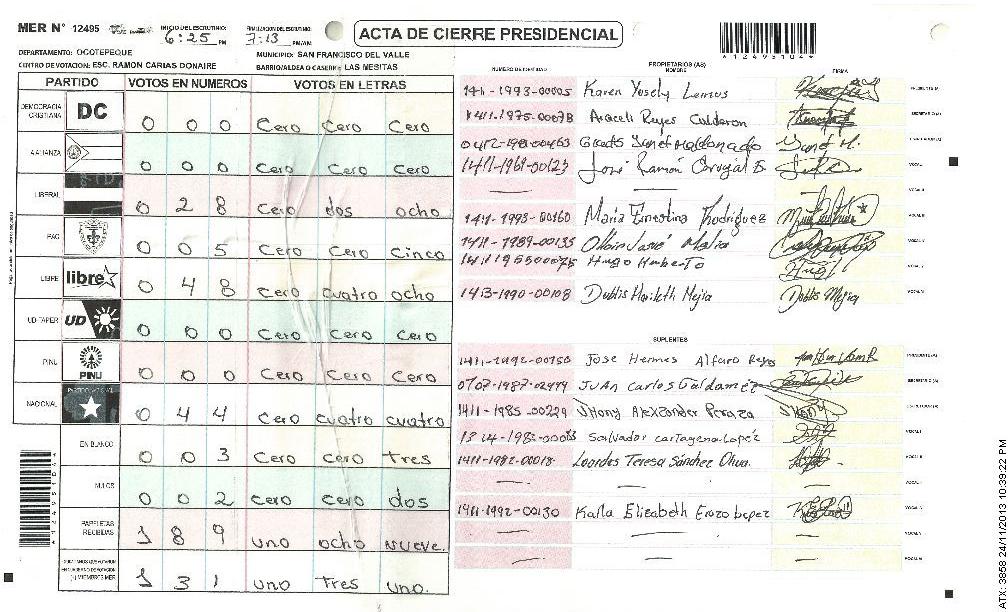 MER N° 12495 INICIO DEL ESCRUTINIO: 6:25 PM FINALIZACION DEL ESCRUTINIO: 7:13 PM/AM
ACTA DE CIERRE PRESIDENCIAL
A1249S104
DEPARTAMENTO: OCOTEPEQUE MUNICIPIO: SAN FRANCISCO DEL VALLE
CENTRO DE VOTACION: ESC. RAMON CARIAS DONAIRE BARRIO/ALDEA O CASERIO: LAS MESITAS
PARTIDO VOTOS EN NUMEROS VOTOS EN LETRAS
DEMOCRACIA CRISTIANA DC 0 0 0 Cero Cero Cero
ALIANZA 0 0 0 Cero Cero Cero
LIBERAL 0 2 8 Cero dos ocho
PAC 0 0 5 Cero Cero Cinco
LIBRE libre 0 4 8 Cero cuatro ocho
UD-FAPER UD 0 0 0 Cero Cero Cero
PINU PINU 0 0 0 Cero Cero Cero
NACIONAL 0 4 4 Cero cuatro cuatro
EN BLANCO 0 0 3 Cero Cero Tres
NULOS 0 0 2 Cero Cero dos
PAPELETAS RECIBIDAS 1 8 9 uno ocho nueve.
1 3 1 uno Tres uno.
PROPIETARIOS (AS)
NUMERO DE IDENTIDAD NOMBRE FIRMA
1411-1993-00005 Karen Yosely Lemus
1411-1975-00078 Araceli Reyes Calderon
0412-1981-00463 Gladis Yanet Maldonado Yanet M.
1411-1969-00123 José Ramón Carvajal
1411-1993-00160 Maria Ernestina Rodriguez
1411-1989-00135 Mejia
1411195500075 Hugo Humberto
1413-1990-00108 Dublis Marileth Mejia Dublis Mejia
SUPLENTES
1411-1992-00150 Jose Hermes Alfaro Reyes
0707-1987-02999 Juan Carlos Galdamez
1411-1985-00229 Jhony Alexzander Peraza Jhony
Salvador Cartagena Lopéz
1411-1982-00018 Lourdes Teresa Sánchez
1411-1992-00130 Karla Elizabeth Erazo Lopez
ATX: 3858 24/11/2013 10:39:22 PM